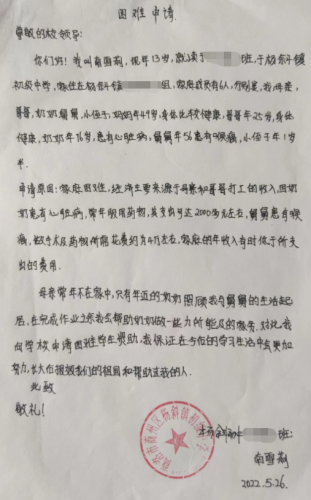 困难申请
尊敬的校领导:
你们好!我叫南雪莉,现年13岁,就读于 班,于杨斜镇
初级中学,家住在杨斜镇 组,家庭成员有6人,分别是,我,母亲,
哥哥,奶奶舅舅,小侄子;妈妈年49岁,身体比较健康,哥哥年25岁,身体
健康,奶奶年76岁,患有心脏病,舅舅年56患有喉病,小侄子年1岁
半。
申请原因:家庭困难,经济主要来源于母亲和哥哥打工的收入,因奶
奶患有心脏病,常年服用药物,其支出可达2000多元左右,舅舅患有喉
病,做手术及药物所需花费约为4万左右,家庭的年收入有时低于所支
出的费用。
母亲常年不在家中,只有年迈的奶奶照顾我与舅舅的生活起
居,在完成作业之余我会帮助奶奶做一些力所能及的家务,对此我
向学校申请困难学生资助,我保证在今后的学习生活中会更加
努力,长大后报效我们的祖国和帮助过我的人。
此致
敬礼!
杨斜初中 班:
南雪莉
2022.5.26.